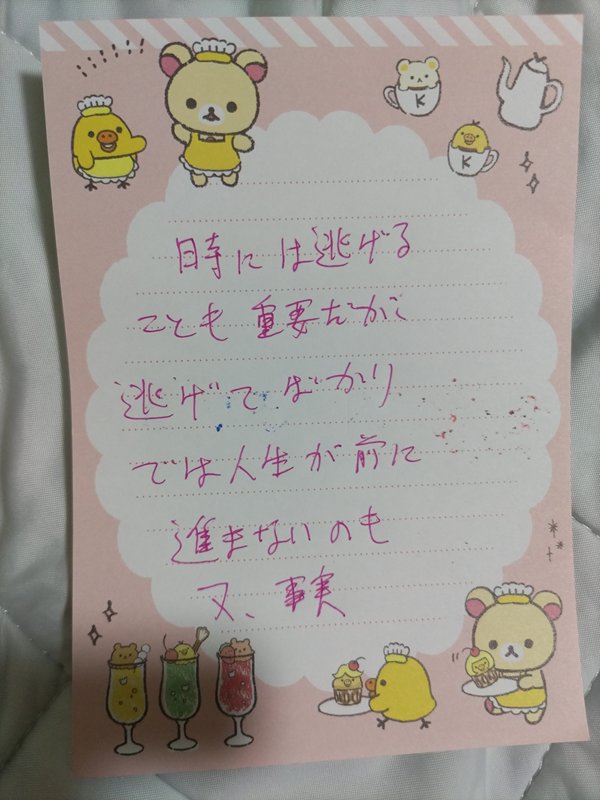 K
K
時には逃げる
ことも重要だが
逃げてばかり
では人生が前に
進まないのも
又、事実